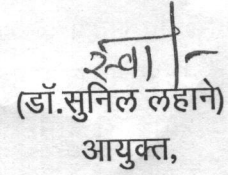 स्वा/-
(डॉ.सुनिल लहाने)
आयुक्त,